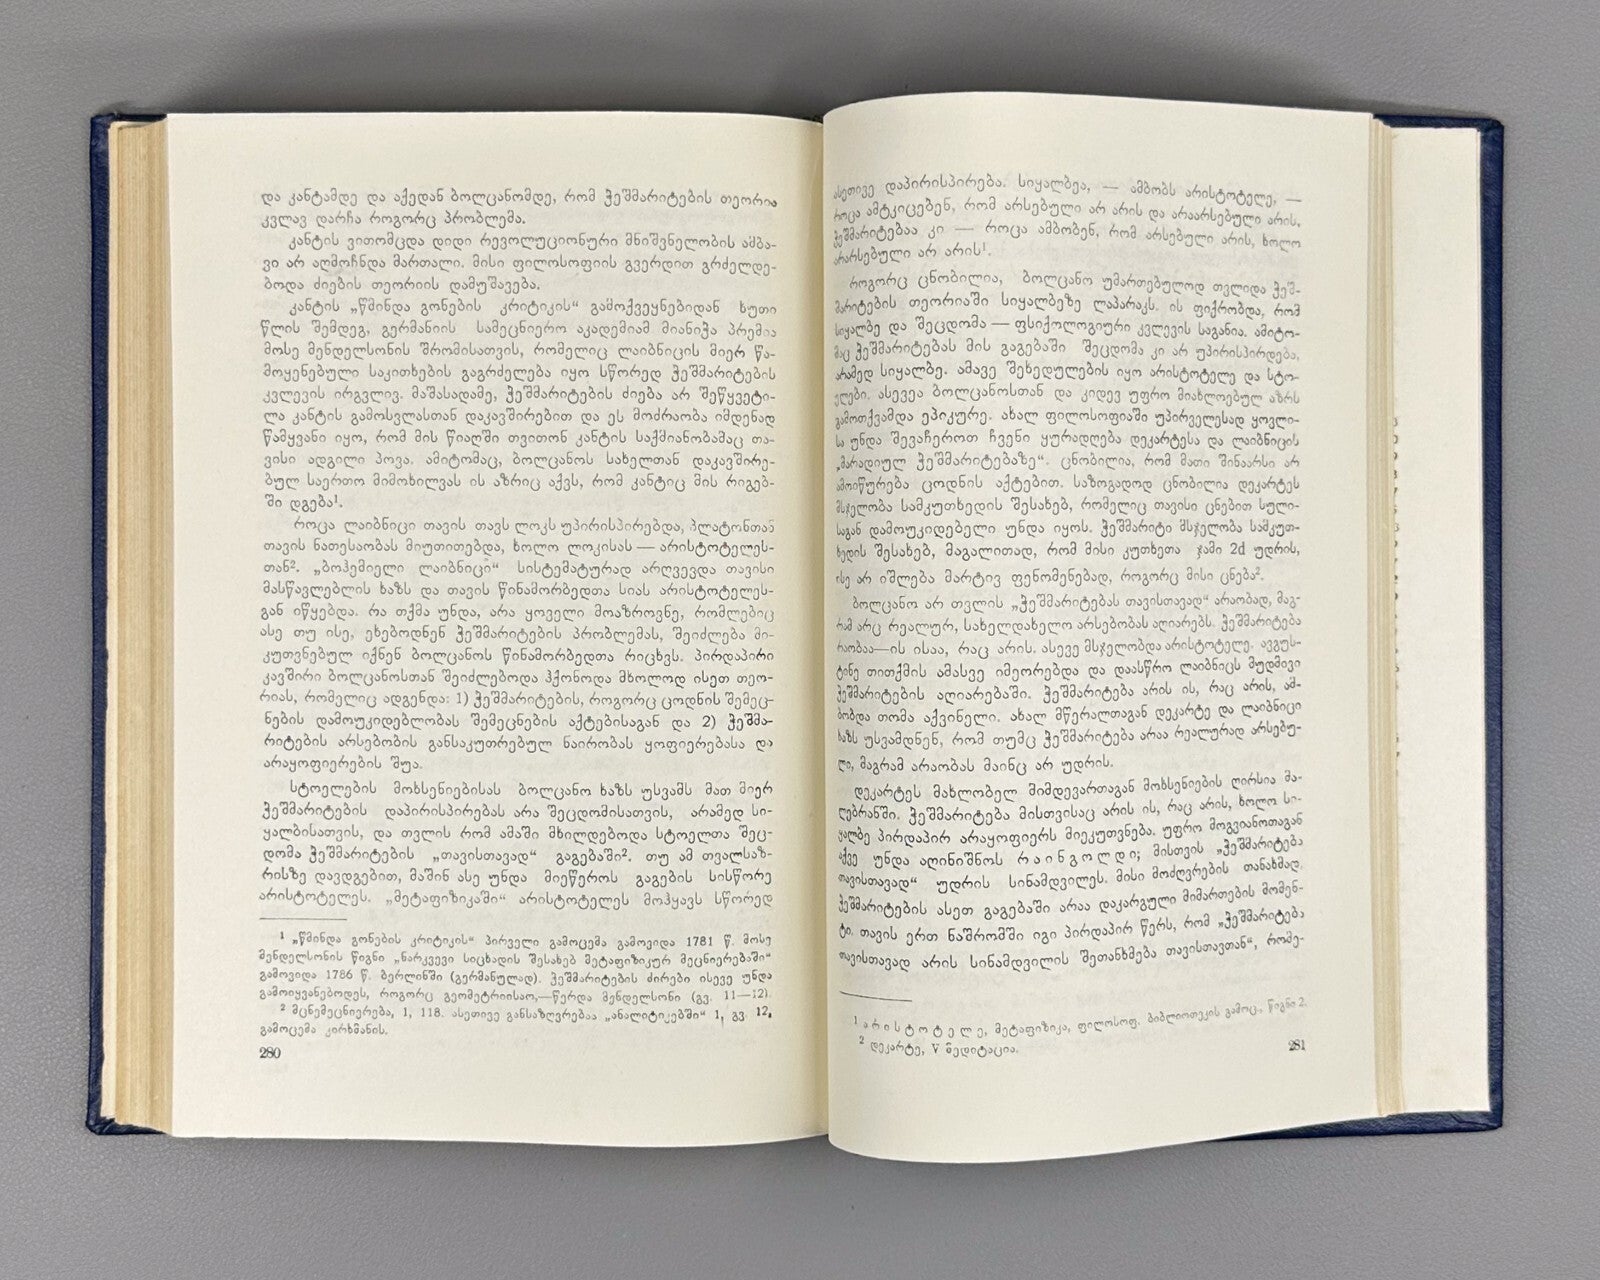 და კანტამდე და აქედან ბოლცანომდე, რომ ჭეშმარიტების თეორია
კვლავ დარჩა როგორც პრობლემა.
კანტის ვითომცდა დიდი რევოლუციონური მნიშვნელობის ამბა-
ვი არ აღმოჩნდა მართალი. მისი ფილოსოფიის გვერდით გრძელდე-
ბოდა ძიების თეორიის დამუშავება.
კანტის „წმინდა გონების კრიტიკის“ გამოქვეყნებიდან ხუთი
წლის შემდეგ, გერმანიის სამეცნიერო აკადემიამ მიანიჭა პრემია
მოსე მენდელსონის შრომისათვის, რომელიც ლაიბნიცის მიერ წა-
მოყენებული საკითხების გაგრძელება იყო სწორედ ჭეშმარიტების
კვლევის ირგვლივ. მაშასადამე, ჭეშმარიტების ძიება არ შეწყვეტი-
ლა კანტის გამოსვლასთან დაკავშირებით და ეს მოძრაობა იმდენად
წამყვანი იყო, რომ მის წიაღში თვითონ კანტის საქმიანობამაც თა-
ვისი ადგილი პოვა. ამიტომაც, ბოლცანოს სახელთან დაკავშირე-
ბულ საერთო მიმოხილვას ის აზრიც აქვს, რომ კანტიც მის რიგებ-
ში დგება¹.
როცა ლაიბნიცი თავის თავს ლოკს უპირისპირებდა, პლატონთან
თავის ნათესაობას მიუთითებდა, ხოლო ლოკისას — არისტოტელეს-
თან². „ბოჰემიელი ლაიბნიცი“ სისტემატურად არღვევდა თავისი
მასწავლებლის ხაზს და თავის წინამორბედთა სიას არისტოტელეს-
გან იწყებდა. რა თქმა უნდა, არა ყოველი მოაზროვნე, რომლებიც
ასე თუ ისე, ეხებოდნენ ჭეშმარიტების პრობლემას, შეიძლება მი-
კუთვნებულ იქნენ ბოლცანოს წინამორბედთა რიცხვს. პირდაპირი
კავშირი ბოლცანოსთან შეიძლებოდა ჰქონოდა მხოლოდ ისეთ თეო-
რიას, რომელიც ადგენდა: 1) ჭეშმარიტების, როგორც ცოდნის შემეც-
ნების დამოუკიდებლობას შემეცნების აქტებისაგან და 2) ჭეშმა-
რიტების არსებობის განსაკუთრებულ ნაირობას ყოფიერებასა და
არაყოფიერების შუა.
სტოელების მოხსენიებისას ბოლცანო ხაზს უსვამს მათ მიერ
ჭეშმარიტების დაპირისპირებას არა შეცდომისათვის, არამედ სი-
ყალბისათვის, და თვლის რომ ამაში მხილდებოდა სტოელთა შეც-
დომა ჭეშმარიტების „თავისთავად“ გაგებაში². თუ ამ თვალსაზ-
რისზე დავდგებით, მაშინ ასე უნდა მიეწეროს გაგების სისწორე
არისტოტელეს. „მეტაფიზიკაში“ არისტოტელეს მოჰყავს სწორედ
¹ „წმინდა გონების კრიტიკის“ პირველი გამოცემა გამოვიდა 1781 წ. მოსე
მენდელსონის წიგნი „ნარკვევი სიცხადის შესახებ მეტაფიზიკურ მეცნიერებაში“
გამოვიდა 1786 წ. ბერლინში (გერმანულად). ჭეშმარიტების ძირები ისევე უნდა
გამოიყვანებოდეს, როგორც გეომეტრიისაო,—წერდა მენდელსონი (გვ. 11—12).
² მცნემეცნიერება, 1, 118. ასეთივე განსაზღვრებაა „ანალიტიკებში“ 1, გვ. 12,
გამოცემა კირხმანის.
280
ასეთივე დაპირისპირება. სიყალბეა, — ამბობს არისტოტელე, —
როცა ამტკიცებენ, რომ არსებული არ არის და არაარსებული არის,
ჭეშმარიტებაა კი — როცა ამბობენ, რომ არსებული არის, ხოლო
არარსებული არ არის¹.
როგორც ცნობილია, ბოლცანო უმართებულოდ თვლიდა ჭეშ-
მარიტების თეორიაში სიყალბეზე ლაპარაკს. ის ფიქრობდა, რომ
სიყალბე და შეცდომა — ფსიქოლოგიური კვლევის საგანია. ამიტო-
მაც ჭეშმარიტებას მის გაგებაში შეცდომა კი არ უპირისპირდება,
არამედ სიყალბე. ამავე შეხედულების იყო არისტოტელე და სტო-
ელები. ასევეა ბოლცანოსთან და კიდევ უფრო მიახლოებულ აზრს
გამოთქვამდა ეპიკურე. ახალ ფილოსოფიაში უპირველესად ყოვლი-
სა უნდა შევაჩეროთ ჩვენი ყურადღება დეკარტესა და ლაიბნიცის
„მარადიულ ჭეშმარიტებაზე“. ცნობილია, რომ მათი შინაარსი არ
ამოიწურება ცოდნის აქტებით. საზოგადოდ ცნობილია დეკარტეს
მსჯელობა სამკუთხედის შესახებ, რომელიც თავისი ცნებით სული-
საგან დამოუკიდებელი უნდა იყოს. ჭეშმარიტი მსჯელობა სამკუთ-
ხედის შესახებ, მაგალითად, რომ მისი კუთხეთა ჯამი 2d უდრის,
ისე არ იშლება მარტივ ფენომენებად, როგორც მისი ცნება².
ბოლცანო არ თვლის „ჭეშმარიტებას თავისთავად“ არაობად, მაგ-
რამ არც რეალურ, სახელდახელო არსებობას აღიარებს. ჭეშმარიტება
რაობაა—ის ისაა, რაც არის. ასევე მსჯელობდა არისტოტელე. ავგუს-
ტინე თითქმის ამასვე იმეორებდა და დაასწრო ლაიბნიცს მუდმივი
ჭეშმარიტების აღიარებაში. ჭეშმარიტება არის ის, რაც არის, ამ-
ბობდა თომა აქვინელი. ახალ მწერალთაგან დეკარტე და ლაიბნიცი
ხაზს უსვამდნენ, რომ თუმც ჭეშმარიტება არაა რეალურად არსებუ-
ლი, მაგრამ არაობას მაინც არ უდრის.
დეკარტეს მახლობელ მიმდევართაგან მოხსენიების ღირსია მა-
ლებრანში. ჭეშმარიტება მისთვისაც არის ის, რაც არის, ხოლო სი-
ყალბე პირდაპირ არაყოფიერს მიეკუთვნება. უფრო მოგვიანოთაგან
აქვე უნდა აღინიშნოს რაინგოლდი; მისთვის „ჭეშმარიტება
თავისთავად“ უდრის სინამდვილეს. მისი მოძღვრების თანახმად,
ჭეშმარიტების ასეთ გაგებაში არაა დაკარგული მიმართების მომენ-
ტი. თავის ერთ ნაშრომში იგი პირდაპირ წერს, რომ „ჭეშმარიტება
თავისთავად არის სინამდვილის შეთანხმება თავისთავთან“, რომე-
¹ არისტოტელე, მეტაფიზიკა, ფილოსოფ. ბიბლიოთეკის გამოც., წიგნი 2.
² დეკარტე, V მედიტაცია.
281